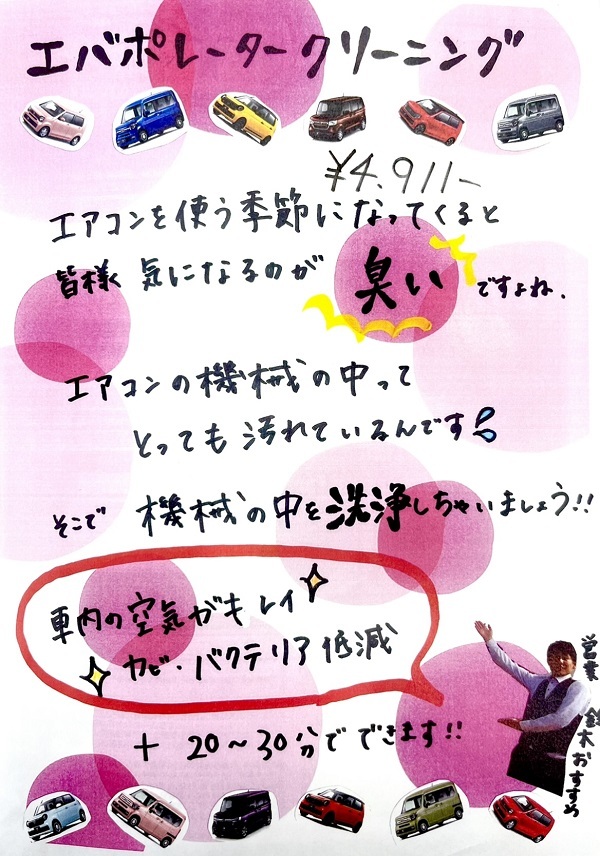 エバポレータークリーニング
¥4,911-
エアコンを使う季節になってくると
皆様 気になるのが 臭い ですよね.
エアコンの機械の中って
とっても汚れているんです
そこで 機械の中を洗浄しちゃいましょう!!
車内の空気がキレイ
カビ・バクテリア低減
+ 20〜30分でできます!!
営業 鈴木おすすめ